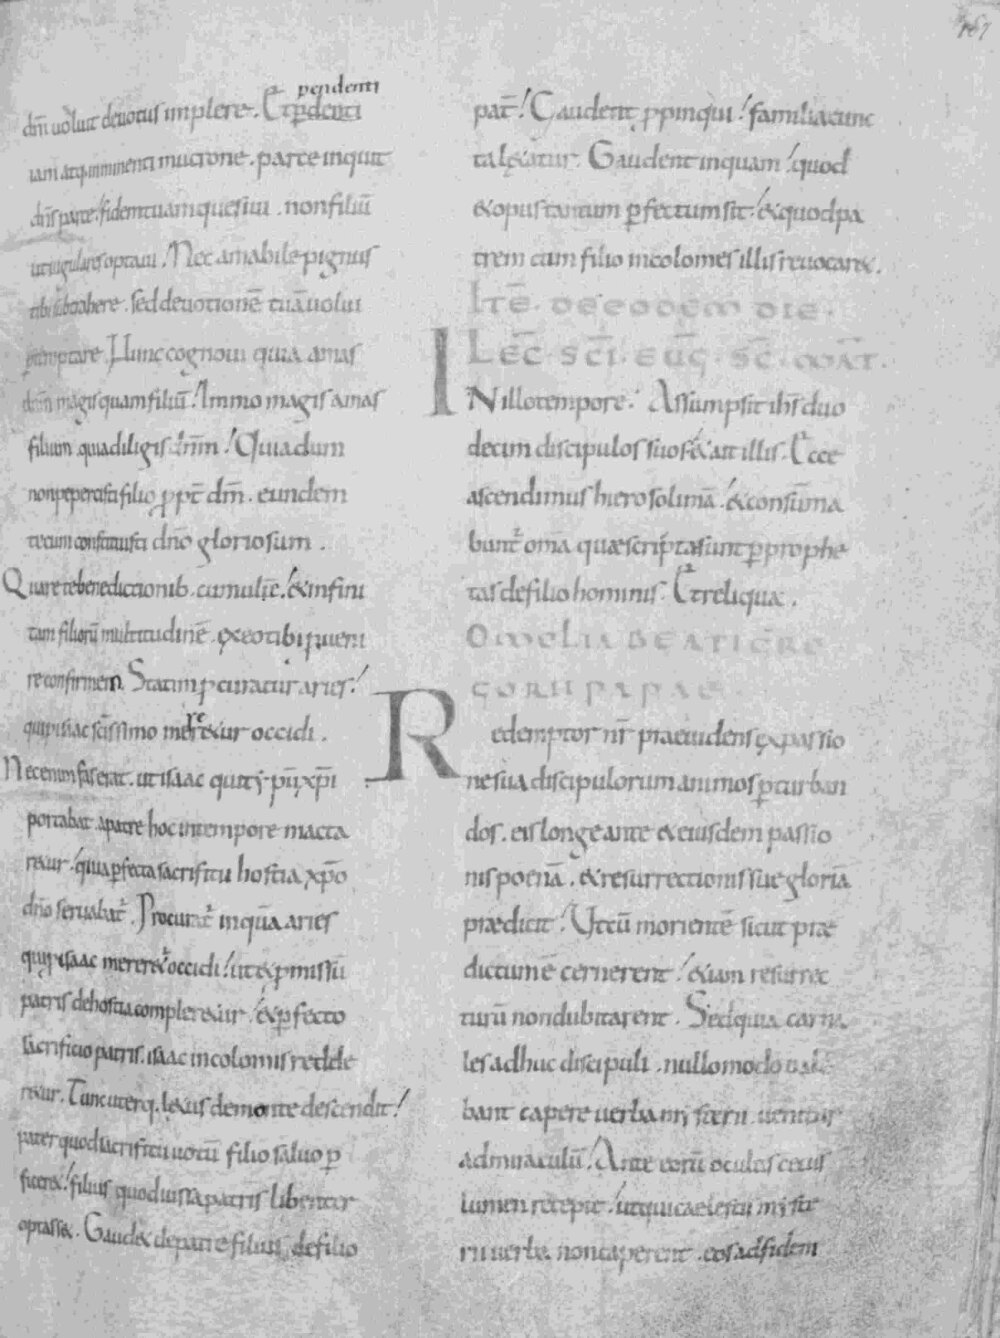 167
pendenti
dm̄ uoluit deuotus implere. Et pdenti
iam atq; imminenti mucrone. parce inquit
dn̄s parce! fidem tuam quesiui. non filiū
ut iugulares optaui! Nec amabile pignus
tibi subtrahere. sed deuotionē tuā uolui
temptare. Nunc cognoui quia amas
dn̄m magis quam filiū! Immo magis amas
filium quia diligis dn̄m! Quia dum
non pepercisti filio ꝓpt̄ dm̄. eundem
tecum constituisti dn̄o gloriosum.
Quare te benedictionib. cumulē! & infini
tam filiorū multitudinē. ex eo tibi ꝓueni
re confirmem. Statim ꝓcuratur aries!
qui ꝓ isaac sc̄issimo mererꝭ&ur occidi.
Nec enim fas erat. ut isaac qui tyꝑū xp̄i
portabat. a patre hoc in tempore macta
r&ur! quia ꝑfecta sacrificii hostia xp̄o
dn̄o seruabat̄. Procurat̄ inquā aries
qui ꝓ isaac merer&̄ occidi! ut & ꝓmissū
patris de hostia compler&ur! & ꝑfecto
sacrificio patris. isaac incolomis redde
r&ur. Tunc uterq; l&us de monte descendit!
pater quod sacrificii uotū filio saluo ꝑ
fecer&! filius quod iussa patris libenter
optass&. Gaud& de patre filius, de filio
pat̄! Gaudent ꝓpinqui! familia cunc
ta l&atur. Gaudent inquam! quod
& opus tantum ꝑfectum sit! & quod pa
trem cum filio incolomes illis reuocar&.
ITĒ. DE EODEM DIE.
LEC̄. SC̄I. EUḠ. SC̄. MAT̄.
IN illo tempore! Assumpsit ih̄s duo
decim discipulos suos & ait illis. Ecce
ascendimus hierosolimā! & consūma
bunt̄ om̄a quæ scripta sunt ꝑ prophe
tas de filio hominis. Et reliqua.
OMELIA BEATI GRE
GORII PAPAE
Redemptor nr̄ præuidens ex passio
ne sua discipulorum animos ꝑturban
dos. eis longe ante & eiusdem passio
nis poenā. & resurrectionis sue gloriā
prædicit! Ut cū morientē sicut præ
dictum ē cernerent! & iam resurrec
turū non dubitarent. Sed quia carna
les adhuc discipuli. nullo modo uale
bant capere uerba mysterii. uenitur
ad miraculū! Ante eorū oculos cecus
lumen recepit! ut qui caelestia myste
rii uerba non caperent. eos ad fidem